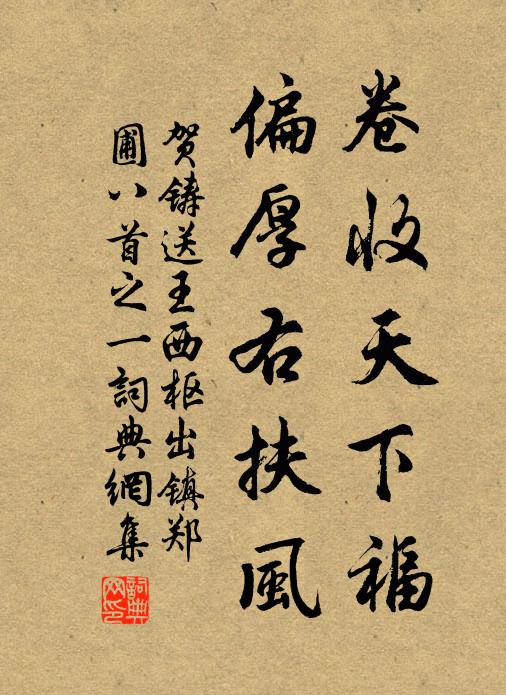 卷收天下福
偏厚右扶風
贺鋳送王西枢出镇郑
圃八首之一詞典網集
詞典网印